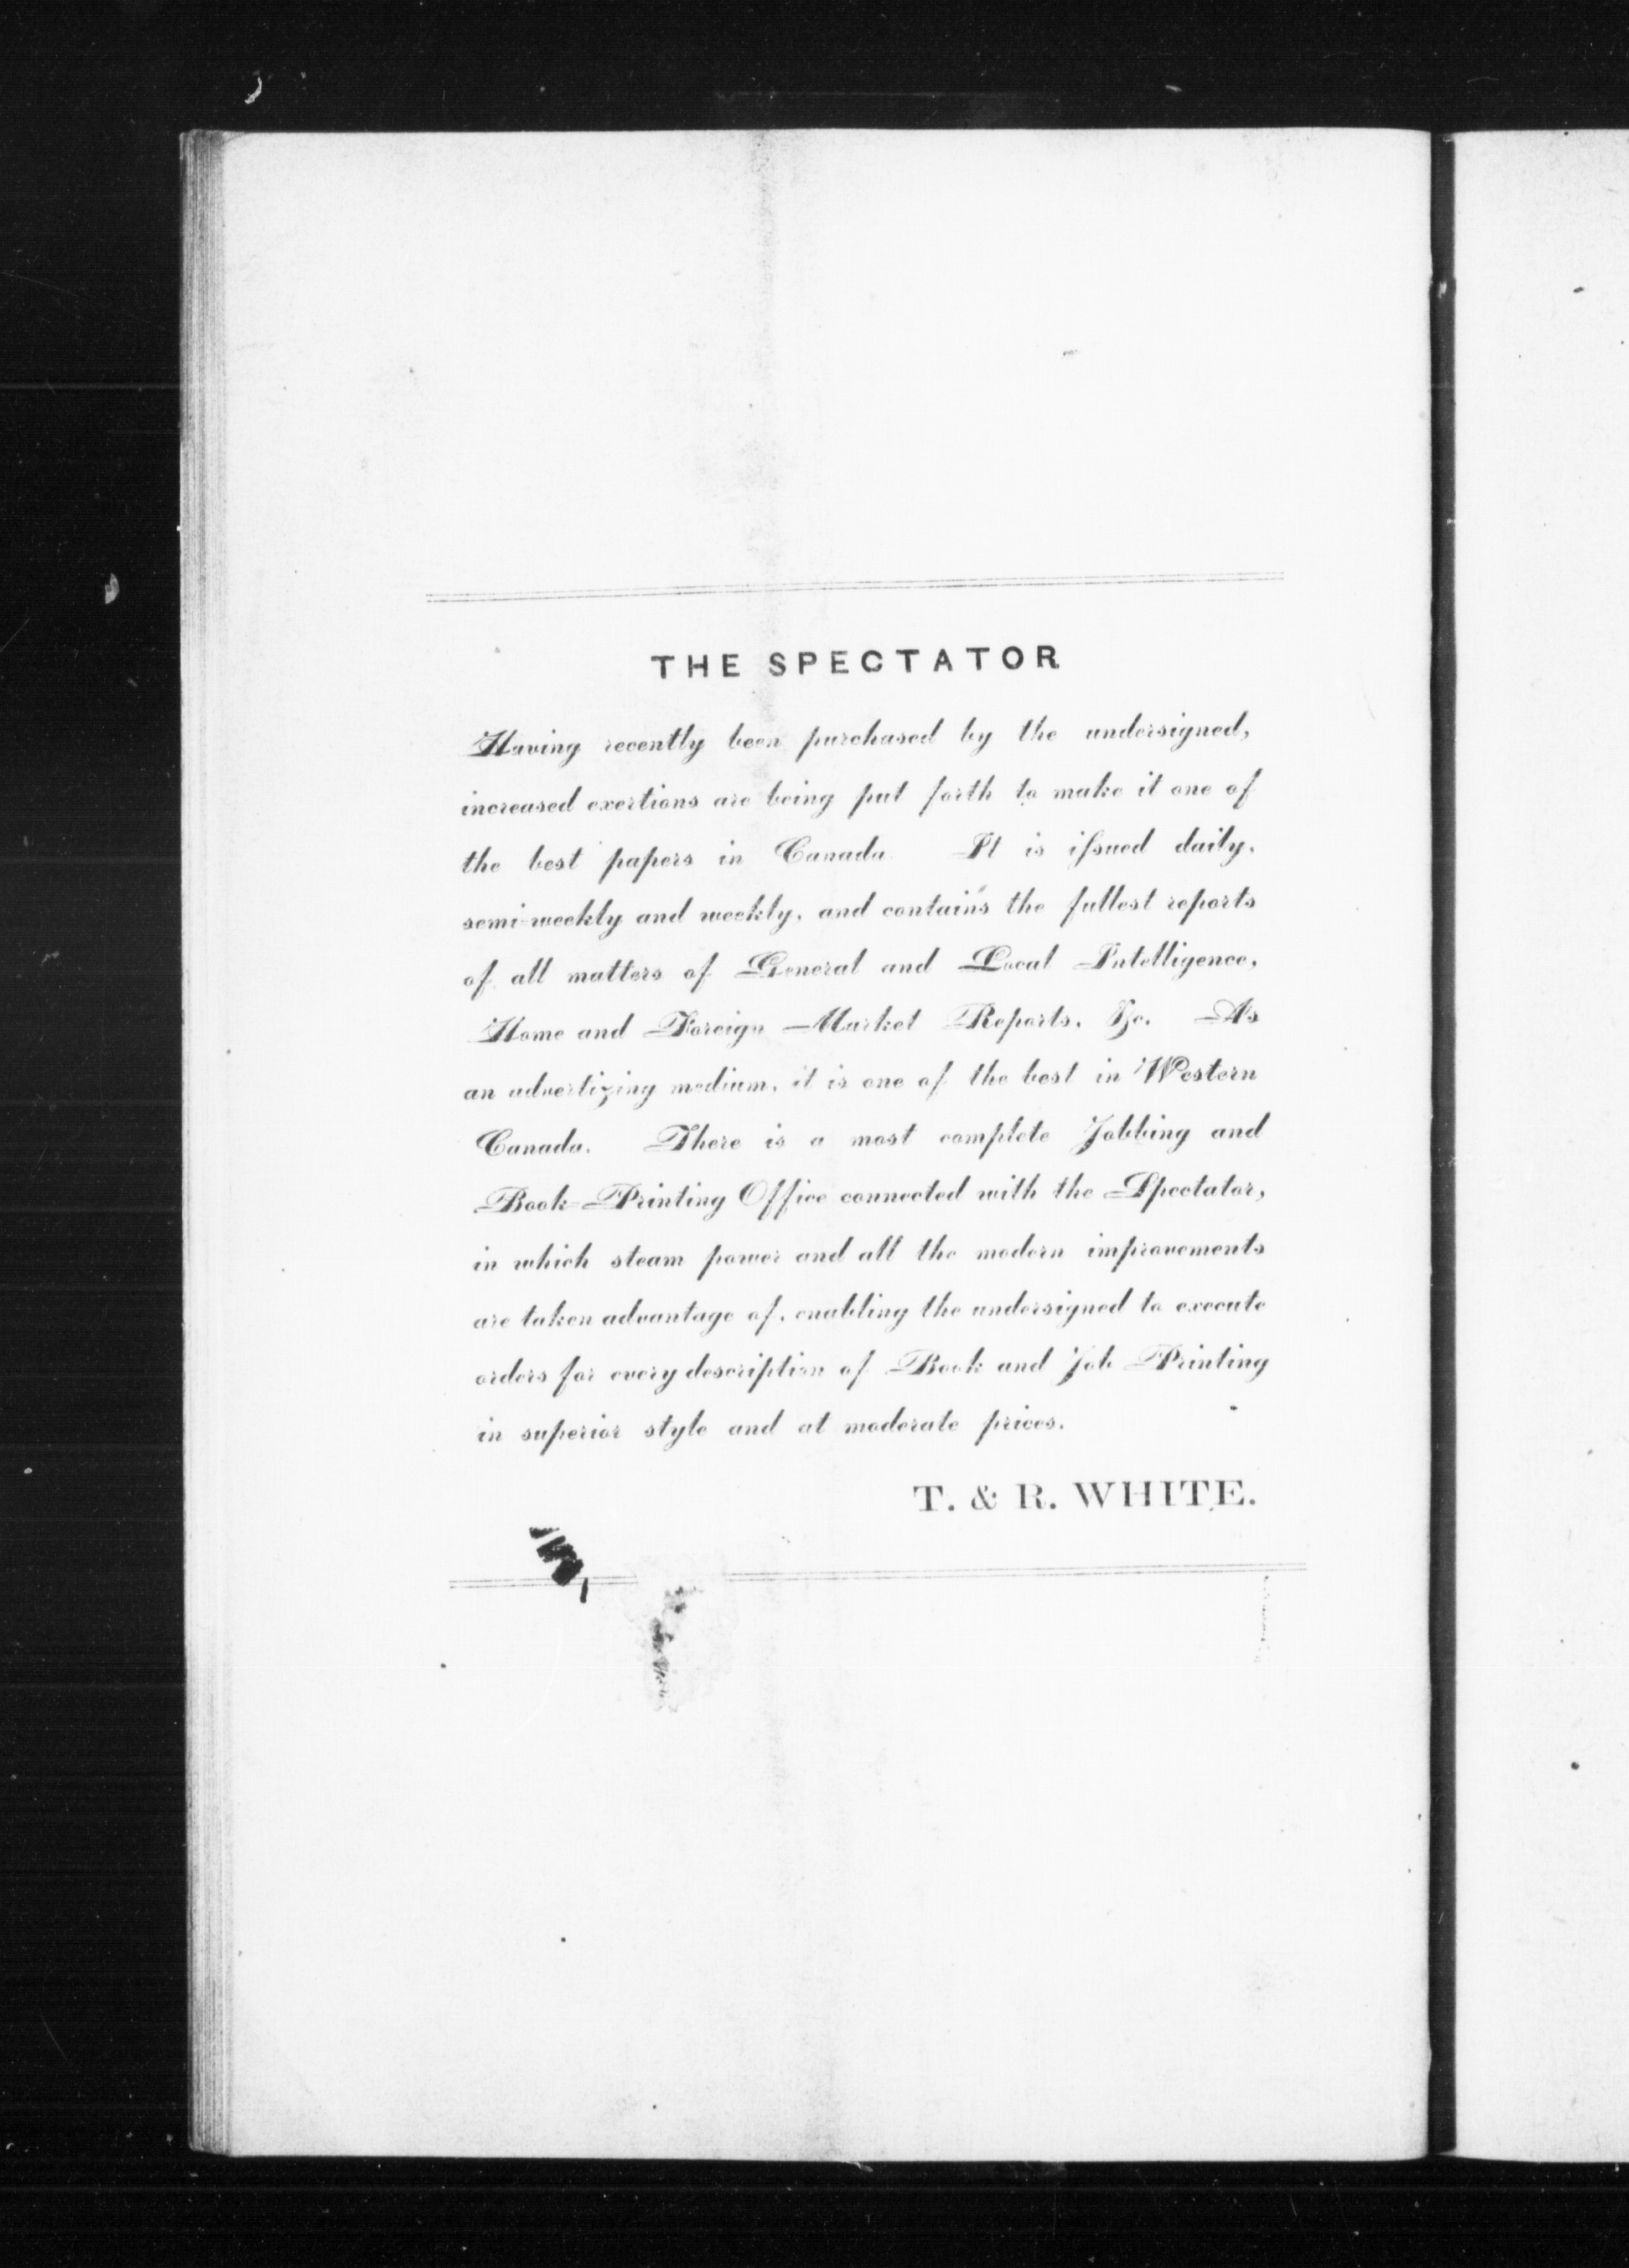 THE SPECTATOR
Having recently been purchased by the undersigned,
increased exertions are being put forth to make it one of
the best papers in Canada. It is ifsued daily,
semi-weekly and weekly, and contains the fullest reports
of all matters of General and Local Intelligence,
Home and Foreign Market Reports, &c. As
an advertizing medium, it is one of the best in Western
Canada. There is a most complete Jobbing and
Book-Printing Office connected with the Spectator,
in which steam power and all the modern improvements
are taken advantage of, enabling the undersigned to execute
orders for every description of Book and Job Printing
in superior style and at moderate prices.
T. & R. WHITE.